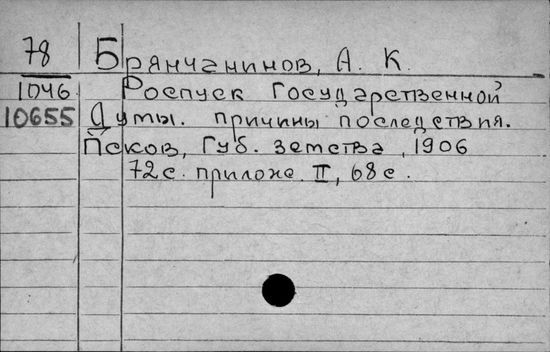 78 Брянчанинов, А. К.
1046 Роспуск Государственной
10655 Думы. причины последствия.
Псков, Губ. земства, 1906
72с. прилож. II, 68с.